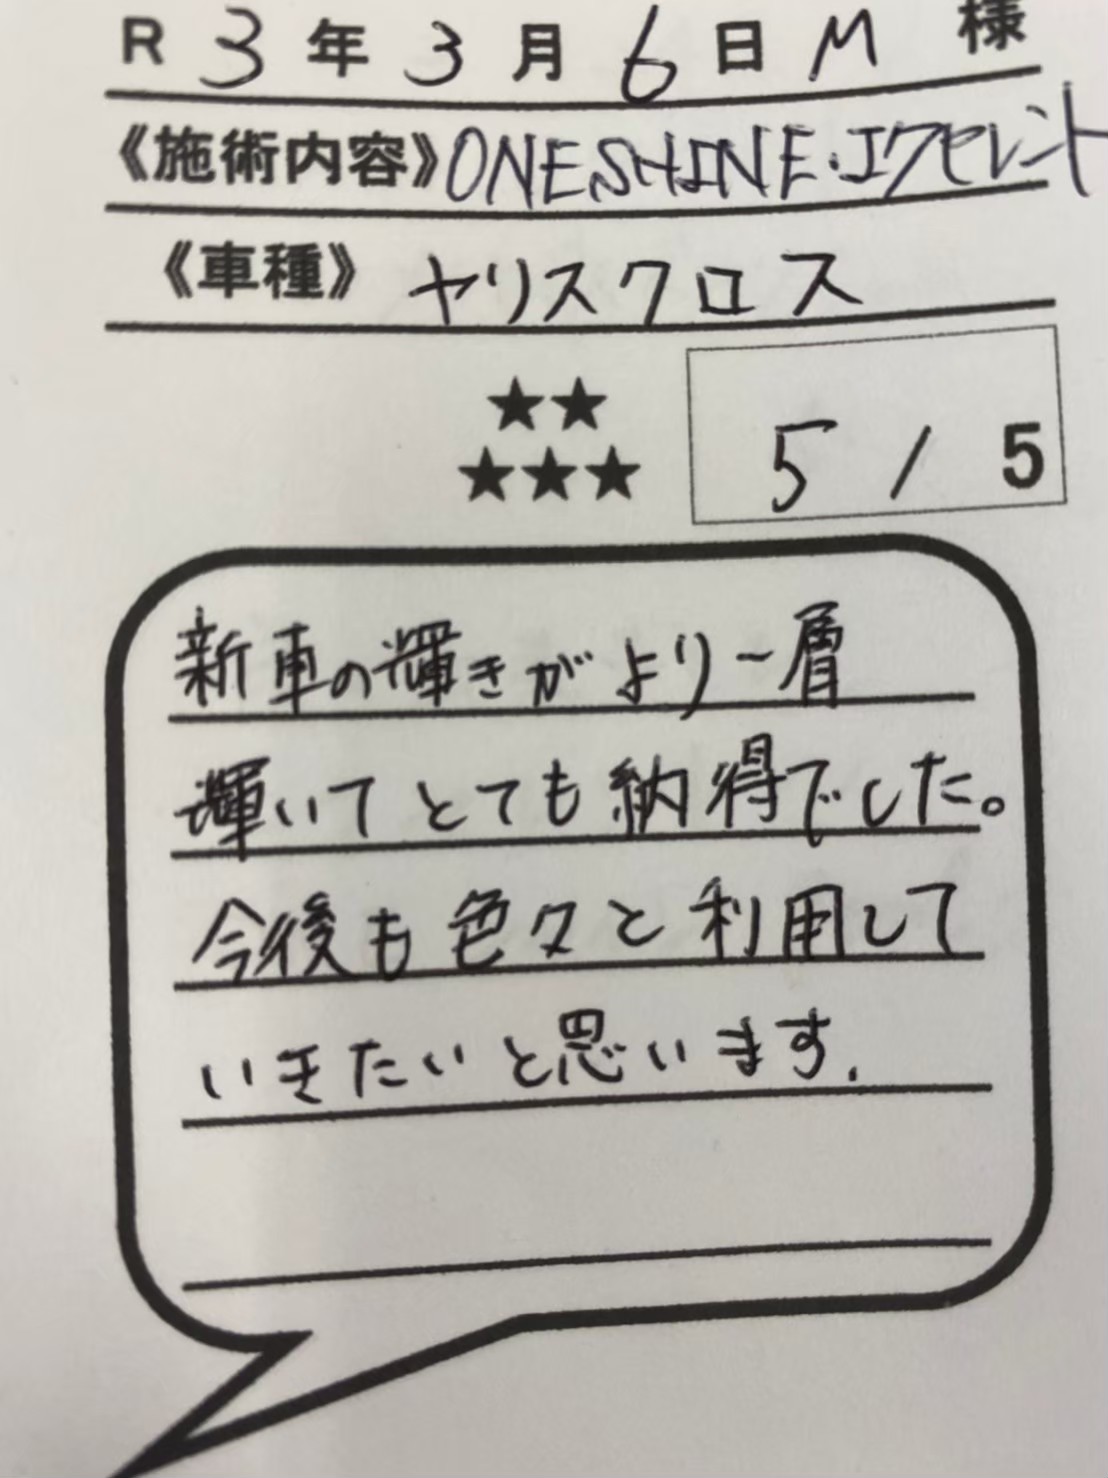 R 3 年 3 月 6 日 M 様
《施術内容》ONESHINE・エクセレント
《車種》ヤリスクロス
★★
★★★
5 / 5
新車の輝きがより一層
輝いてとても納得でした。
今後も色々と利用して
いきたいと思います.